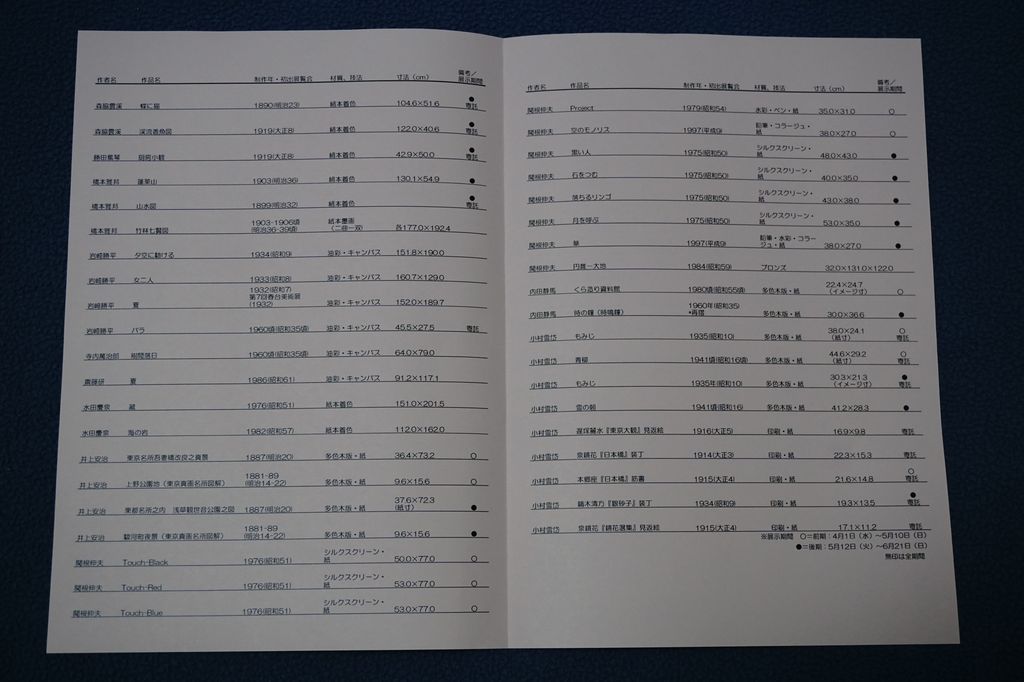 作者名 作品名 制作年・初出展覧会 材質、技法 寸法（cm） 備考／展示期間
森脇雲渓 蝶に猫 1890(明治23) 絹本着色 104.6×51.6 ● 寄託
森脇雲渓 渓流香魚図 1919(大正8) 絹本着色 122.0×40.6 ● 寄託
勝田蕉琴 1919(大正8) 絹本着色 42.9×50.0 ● 寄託
橋本雅邦 蓬莱山 1903(明治36) 絹本着色 130.1×54.9 ●
橋本雅邦 山水図 1899(明治32) 絹本着色 ● 寄託
橋本雅邦 竹林七賢図 1903-1906頃(明治36-39頃) 紙本墨画（二曲一双） 各177.0×192.4
岩崎勝平 夕空に聴ける 1934(昭和9) 油彩・キャンバス 151.8×190.0
岩崎勝平 女二人 1933(昭和8) 油彩・キャンバス 160.7×129.0
岩崎勝平 夏 1932(昭和7) 第7回春台美術展(1932) 油彩・キャンバス 152.0×189.7
岩崎勝平 バラ 1960頃(昭和35頃) 油彩・キャンバス 45.5×27.5 寄託
寺内萬治郎 落日 1960頃(昭和35頃) 油彩・キャンバス 64.0×79.0
齋藤研 夏 1986(昭和61) 油彩・キャンバス 91.2×117.1
水田慶泉 蔵 1976(昭和51) 紙本着色 151.0×201.5
水田慶泉 海の岩 1982(昭和57) 紙本着色 112.0×162.0
井上安治 東京名所吾妻橋改良之真景 1887(明治20) 多色木版・紙 36.4×73.2 ○
井上安治 上野公園地（東京真画名所図解） 1881-89(明治14-22) 多色木版・紙 9.6×15.6 ○
井上安治 東都名所之内 浅草観世音公園之図 1887(明治20) 多色木版・紙 37.6×72.3（紙寸） ●
井上安治 駿河町夜景（東京真画名所図解） 1881-89(明治14-22) 多色木版・紙 9.6×15.6 ●
関根伸夫 Touch-Black 1976(昭和51) シルクスクリーン・紙 50.0×77.0 ○
関根伸夫 Touch-Red 1976(昭和51) シルクスクリーン・紙 53.0×77.0 ○
関根伸夫 Touch-Blue 1976(昭和51) シルクスクリーン・紙 53.0×77.0 ○
作者名 作品名 制作年・初出展覧会 材質、技法 寸法（cm） 備考／展示期間
関根伸夫 Project 1979(昭和54) 水彩・ペン・紙 35.0×31.0 ○
関根伸夫 空のモノリス 1997(平成9) 鉛筆・コラージュ・紙 38.0×27.0 ○
関根伸夫 黒い人 1975(昭和50) シルクスクリーン・紙 48.0×43.0 ●
関根伸夫 石をつむ 1975(昭和50) シルクスクリーン・紙 40.0×35.0 ●
関根伸夫 落ちるリンゴ 1975(昭和50) シルクスクリーン・紙 43.0×38.0 ●
関根伸夫 月を呼ぶ 1975(昭和50) シルクスクリーン・紙 53.0×35.0 ●
関根伸夫 1997(平成9) 鉛筆・水彩・コラージュ・紙 38.0×27.0 ●
関根伸夫 円錐－大地 1984(昭和59) ブロンズ 32.0×131.0×122.0
内田静馬 くら造り資料館 1980頃(昭和55頃) 多色木版・紙 22.4×24.7（イメージ寸） ○
内田静馬 時の鐘（時鳴鐘） 1960年(昭和35) 多色木版・紙 30.0×36.6 ●
小村雪岱 もみじ 1935(昭和10) 多色木版・紙 38.0×24.1（紙寸） ○ 寄託
小村雪岱 青柳 1941頃(昭和16頃) 多色木版・紙 44.6×29.2（紙寸） ○ 寄託
小村雪岱 もみじ 1935年(昭和10) 多色木版・紙 30.3×21.3（イメージ寸） ● 寄託
小村雪岱 雪の朝 1941頃(昭和16) 多色木版・紙 41.2×28.3 ●
小村雪岱 遅塚麗水『東京大観』見返絵 1916(大正5) 印刷・紙 16.9×9.8 寄託
小村雪岱 泉鏡花『日本橋』装丁 1914(大正3) 印刷・紙 22.3×15.3 寄託
小村雪岱 本郷座『日本橋』筋書 1915(大正4) 印刷・紙 21.6×14.8 ○ 寄託
小村雪岱 鏑木清方『銀砂子』装丁 1934(昭和9) 印刷・紙 19.3×13.5 ● 寄託
小村雪岱 泉鏡花『鏡花選集』見返絵 1915(大正4) 印刷・紙 17.1×11.2 寄託
※展示期間 ○＝前期：4月1日（水）～5月10日（日）
●＝後期：5月12日（火）～6月21日（日）
無印は全期間